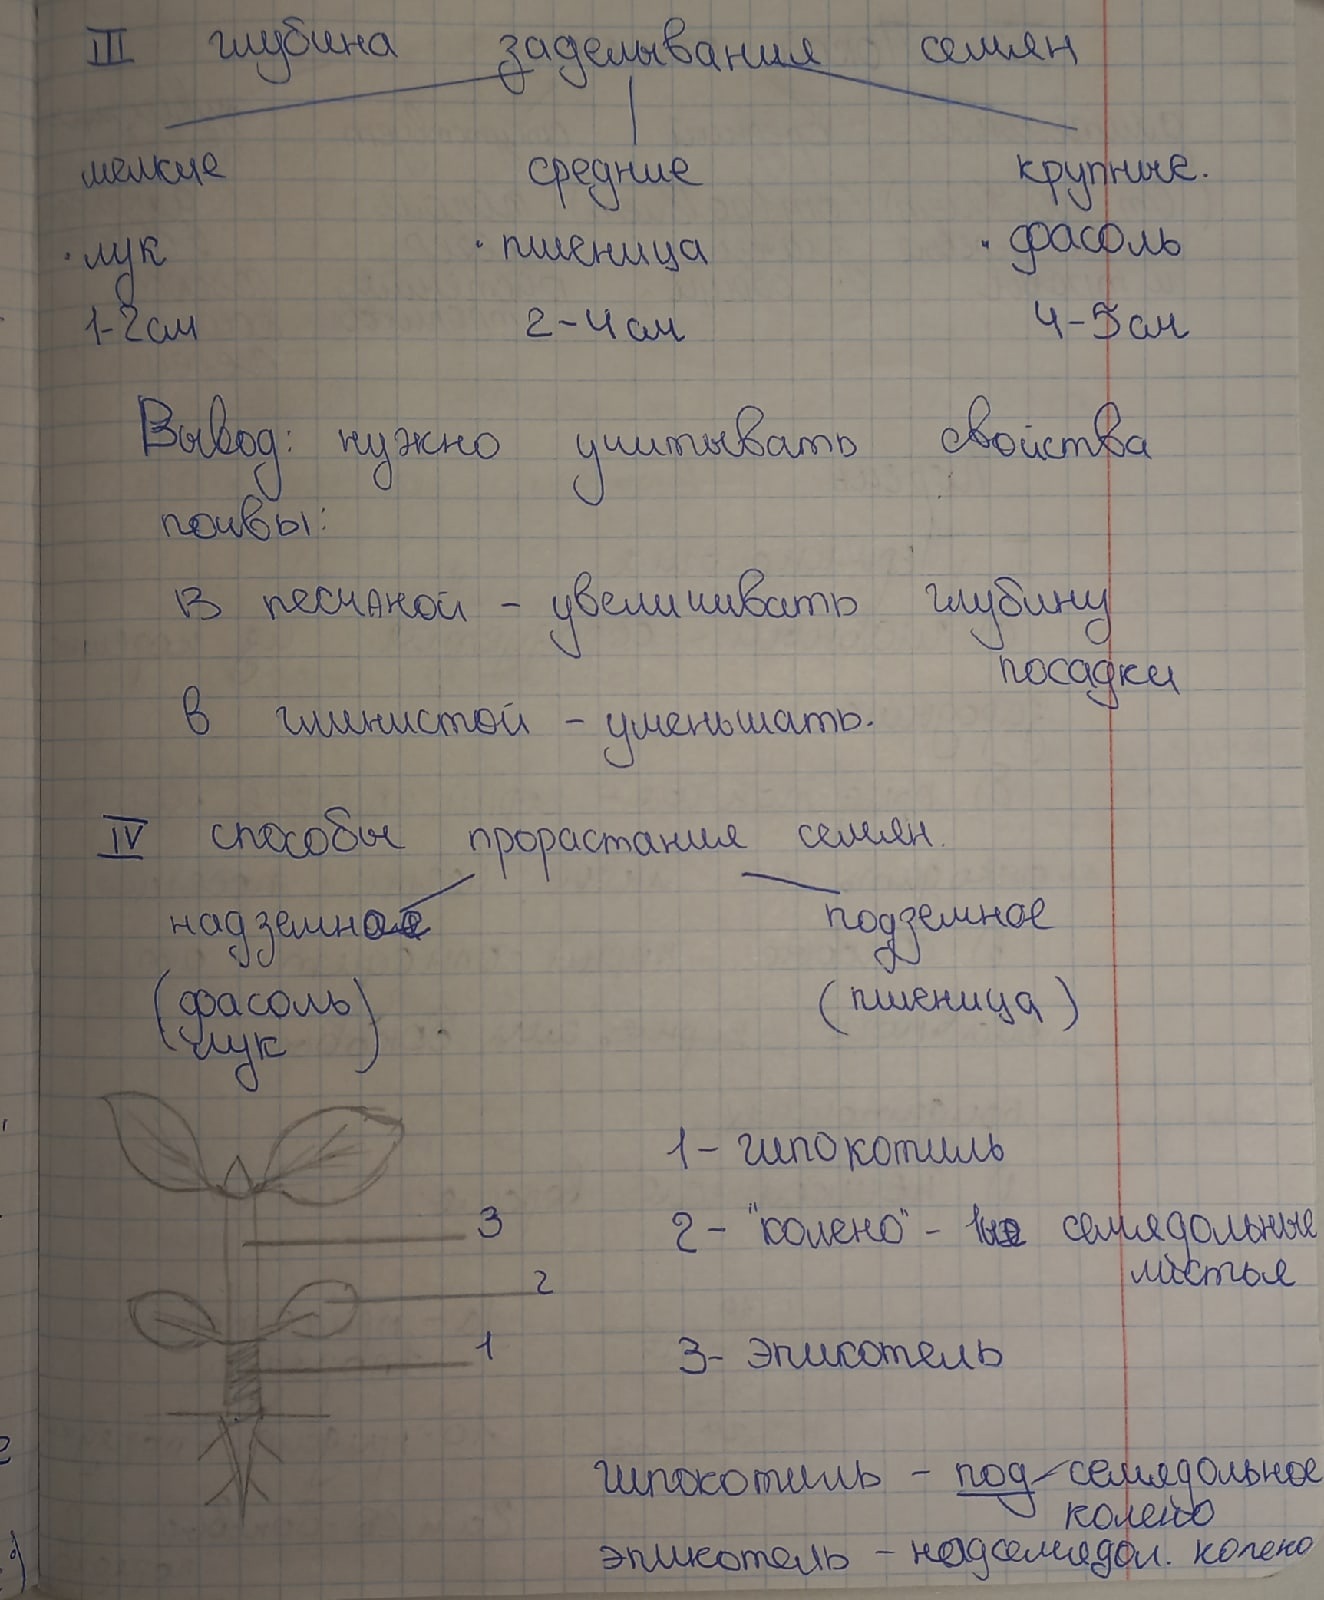 III глубина заделывания семян
мелкие средние крупные.
· лук · пшеница · фасоль
1-2см 2-4см 4-5см
Вывод: нужно учитывать свойства
почвы:
В песчаной - увеличивать глубину
посадки
в глинистой - уменьшать.
IV способы прорастания семян.
надземное подземное
(фасоль) (пшеница)
(лук )
1- гипокотиль
3
2- "колено" - семядольные
листья
2
1
3- эпикотель
гипокотиль - под-семядольное
колено
эпикотель - надсемядол. колено